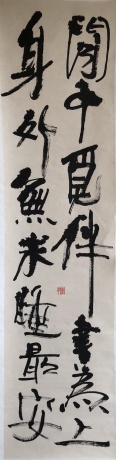 閒中覓伴書為上
身外無求睡最安